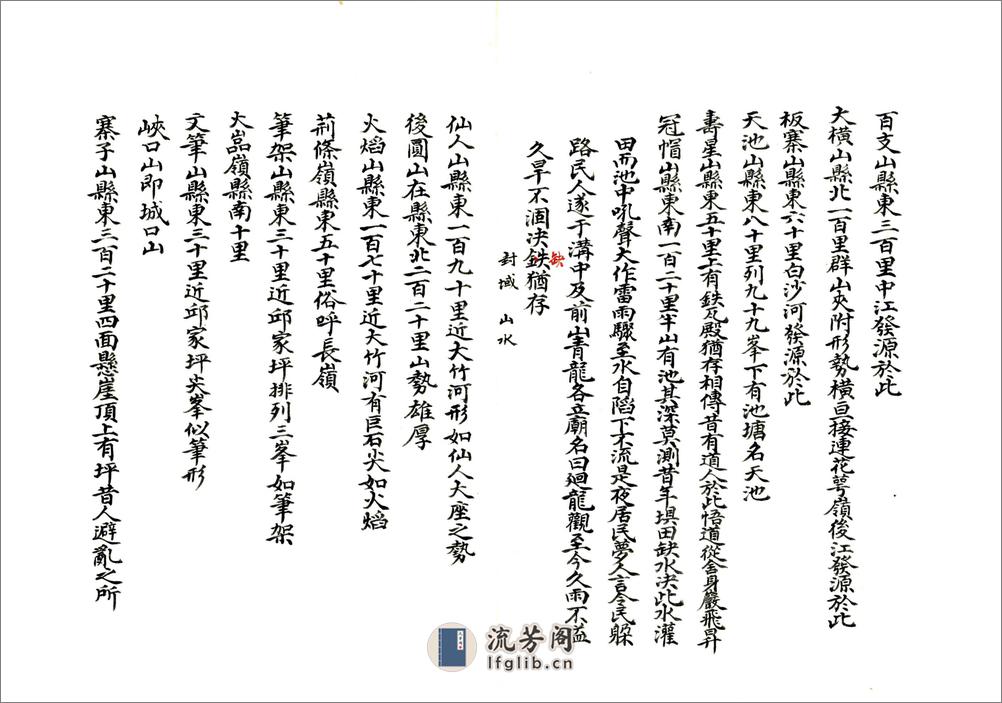 百支山縣東三百里中江發源於此
大橫山縣北一百里群山夾附形勢橫亘接連花萼嶺後江發源於此
板寨山縣東六十里白沙河發源於此
天池山縣東八十里列九十九峯下有池塘名天池
壽星山縣東五十里上有鉄瓦殿猶存相傳昔有道人於此悟道從舍身巖飛昇
冠帽山縣東南一百二十里半山有池其深莫測昔年埧田缺水決此水灌
田而池中吼聲大作雷雨驟至水自陷下不流是夜居民夢人言令民躱
路民人遂于溝中及前山青龍各立廟名曰廻龍觀至今久雨不溢
久旱不涸決鉄猶存
缺
封域 山水
仙人山縣東一百九十里近大竹河形如仙人大座之勢
後圓山在縣東北二百二十里山勢雄厚
火焰山縣東一百七十里近大竹河有巨石尖如火焰
荊條嶺縣東五十里俗呼長嶺
筆架山縣東三十里近邱家坪排列三峯如筆架
大嵓嶺縣南十里
文筆山縣東三十里近邱家坪尖峯似筆形
峽口山即城口山
寨子山縣東三百二十里四面懸崖頂上有坪昔人避亂之所
流芳阁
lfglib.cn